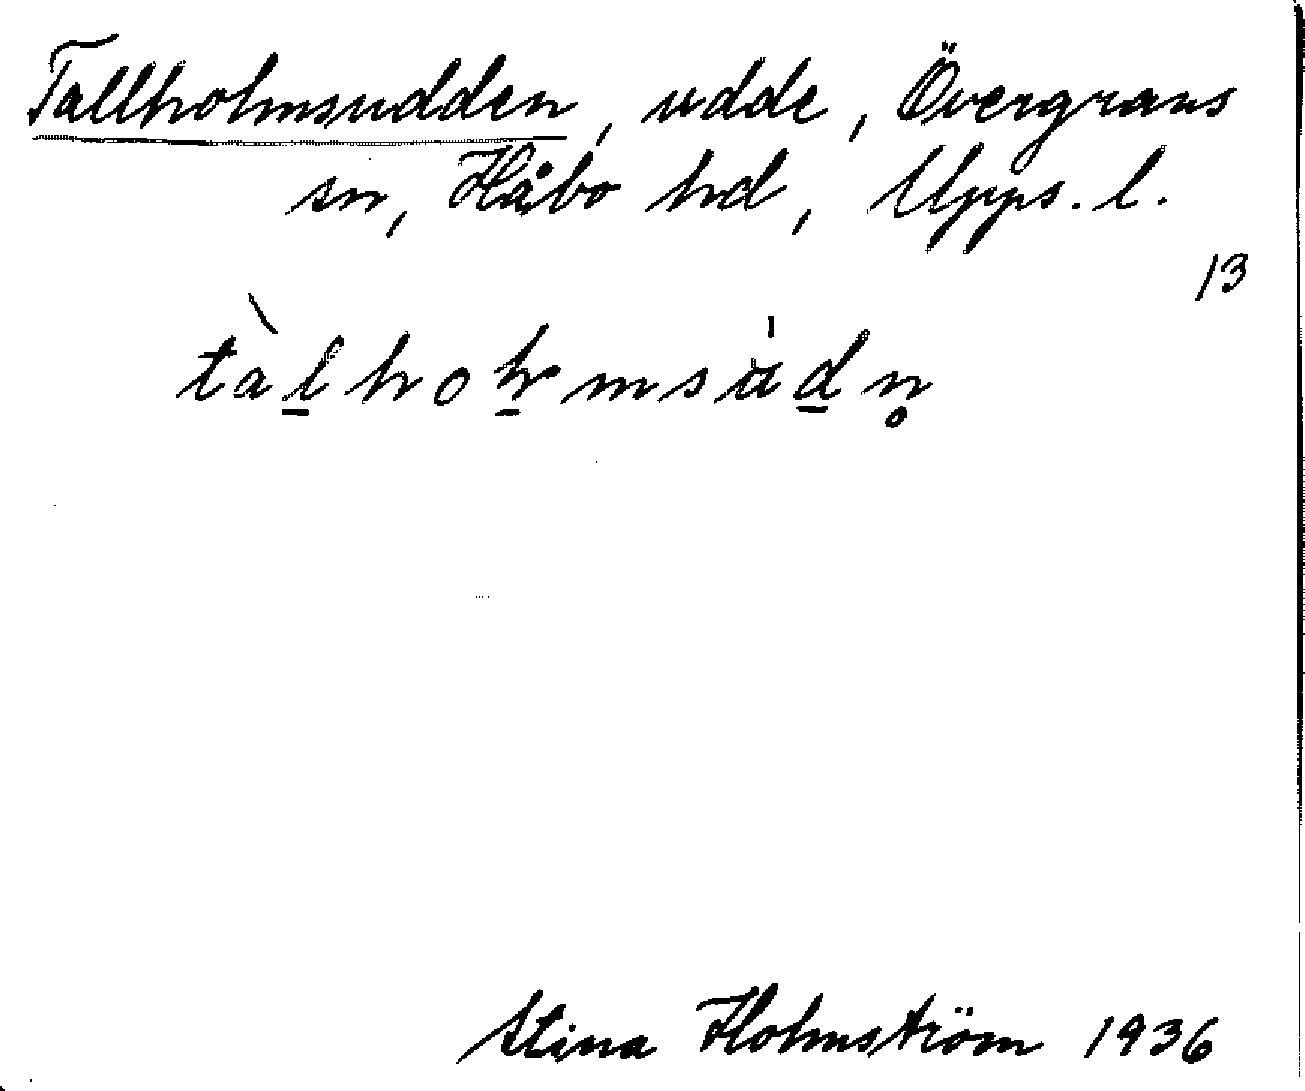 Tallholmsudden, udde, Övergrans
sn, Håbo hd, Upps. l.
13
Stina Holmström 1936